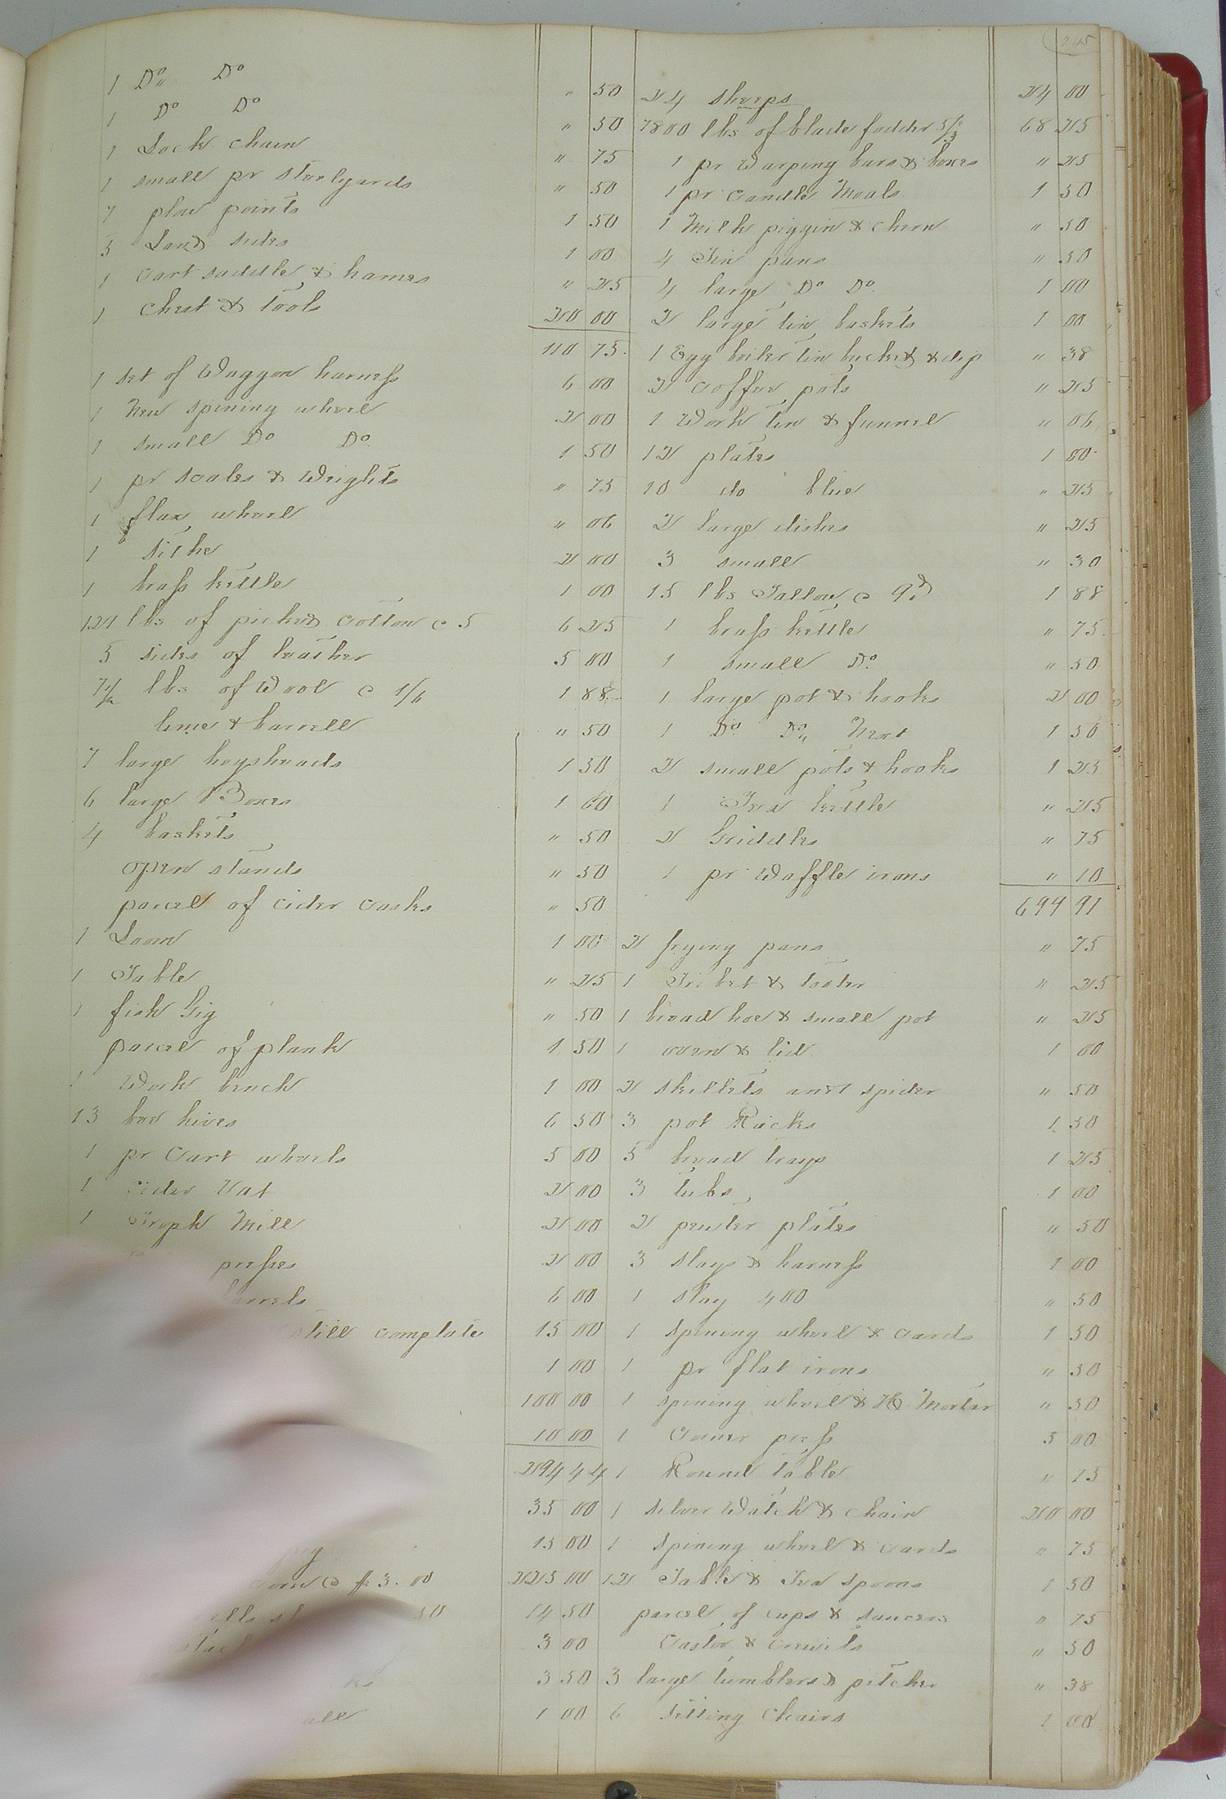 245
1 Do Do " 50
1 Do Do " 50
1 Lock chain " 75
1 small pr steelyards " 50
7 plow points 1 50
5 Land sides 1 00
1 Cart saddle & hames " 25
1 Chest & Tools 20 00
110 75
1 set of Waggon harness 6 00
1 New spining wheel 2 00
1 small Do Do 1 50
1 pr scales & Weights " 75
1 flax wheel " 06
1 sithe 2 00
1 brass kettle 1 00
121 lbs of picked cotton @ 5 6 25
5 sides of leather 5 00
7 1/2 lbs of Wool @ 1/6 1 88
lime & barrell " 50
7 large hogsheads 1 50
6 large Boxes 1 60
4 baskets " 50
open stands " 50
parcel of cider casks " 50
1 Loom 1 00
1 Table " 25
1 fish Gig " 50
parcel of plank 1 50
1 Work bench 1 00
13 bee hives 6 50
1 pr Cart wheels 5 00
1 cider Vat 2 00
1 Mill 2 00
presses 2 00
barrels 6 00
still complete 15 00
1 00
100 00
10 00
294 44
35 00
15 00
corn @ $3.00 225 00
50 14 50
3 00
3 50
1 00
24 sheeps 24 00
7800 lbs of blade fodder 5/3 68 25
1 pr Warping bars & boxes " 25
1 pr Candle Moals 1 50
1 Milk piggin & churn " 50
4 Tin pans " 50
4 large Do Do 1 00
2 large tin baskets 1 00
1 Egg boiler tin bucket & dip " 38
2 Coffee pots " 25
1 Work tin & funnel " 06
12 plates 1 00
10 do blue " 25
2 large dishes " 25
3 small " 30
15 lbs Tallow @ 9d 1 88
1 brass kettle " 75
1 small Do " 50
1 large pot & hooks 2 00
1 Do Do Next 1 50
2 small pots & hooks 1 25
1 Tea kettle " 25
2 Griddles " 75
1 pr Waffle irons " 10
694 91
2 frying pans " 75
1 Tribet & toster " 25
1 broad hoe & small pot " 25
1 oven & lid 1 00
2 skillets and spider " 50
3 pot Racks 1 50
5 bread trays 1 25
3 tubs 1 00
2 pewter plates " 50
3 slays & harness 1 00
1 slay 400 " 50
1 spining wheel & cards 1 50
1 pr flat irons " 50
1 spining wheel & Mortar " 50
1 Corner press 5 00
1 Round table " 75
1 silver Watch & chain 20 00
1 spining wheel & cards " 75
12 Table & Tea spoons 1 50
parcel of cups & saucers " 75
Castor & cruits " 50
3 large tumblers & pitcher " 38
6 sitting Chairs 2 00